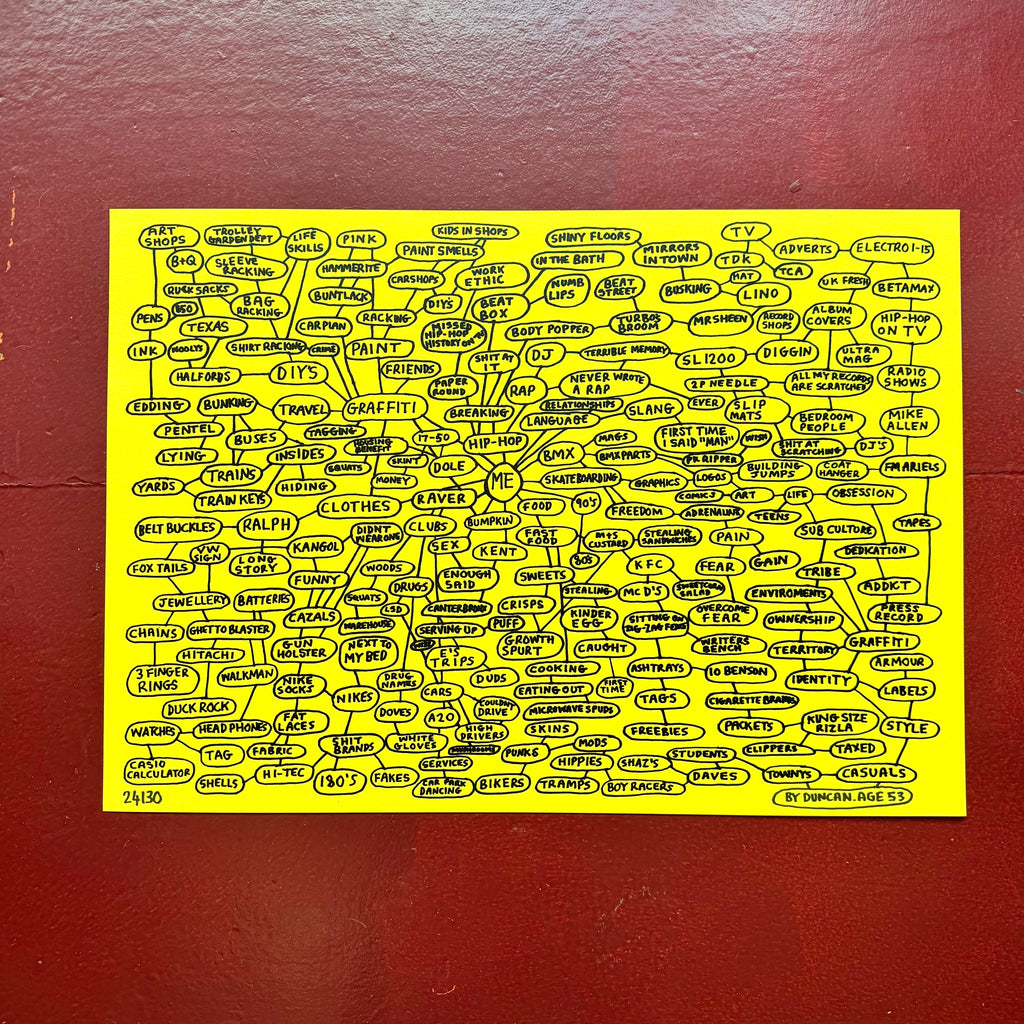 ART
SHOPS
TROLLEY
GARDEN DEPT
LIFE
SKILLS
PINK
KIDS IN SHOPS
PAINT SMELLS
SHINY FLOORS
MIRRORS
IN TOWN
TV
ADVERTS
ELECTRO 1-15
B+Q
SLEEVE
RACKING
HAMMERITE
CARSHOPS
WORK
ETHIC
IN THE BATH
TDK
TCA
HAT
UK FRESH
BETAMAX
RUCK SACKS
BAG
RACKING
BUNTLACK
DIY'S
BEAT
BOX
NUMB
LIPS
BEAT
STREET
BUSKING
LINO
PENS
TEXAS
CARPLAN
RACKING
MISSED
HIP-HOP
HISTORY ON TV
BODY POPPER
TURBO'S
BROOM
MR SHEEN
RECORD
SHOPS
ALBUM
COVERS
HIP-HOP
ON TV
INK
WOOLYS
SHIRT RACKING
CRIME
PAINT
SHIT AT
IT
DJ
TERRIBLE MEMORY
SL1200
DIGGIN
ULTRA
MAG
HALFORDS
DIY'S
FRIENDS
PAPER
ROUND
RAP
NEVER WROTE
A RAP
2P NEEDLE
ALL MY RECORDS
ARE SCRATCHED
RADIO
SHOWS
EDDING
BUNKING
TRAVEL
GRAFFITI
BREAKING
RELATIONSHIPS
LANGUAGE
SLANG
EVER
SLIP
MATS
BEDROOM
PEOPLE
MIKE
ALLEN
PENTEL
BUSES
TAGGING
HOUSING
BENEFIT
17-50
HIP-HOP
MAGS
FIRST TIME
I SAID "MAN"
WISH
SHIT AT
SCRATCHING
DJ'S
LYING
INSIDES
SQUATS
SKINT
DOLE
ME
BMX
BMX PARTS
PK RIPPER
BUILDING
JUMPS
COAT
HANGER
FM ARIELS
YARDS
TRAINS
HIDING
MONEY
SKATEBOARDING
GRAPHICS
LOGOS
TRAIN KEYS
CLOTHES
RAVER
FOOD
90'S
FREEDOM
COMICS
ART
LIFE
OBSESSION
BELT BUCKLES
RALPH
DIDNT
WEAR ONE
CLUBS
BUMPKIN
FAST
FOOD
M+S
CUSTARD
STEALING
SANDWICHES
ADRENALINE
TEENS
SUB CULTURE
TAPES
VW
SIGN
LONG
STORY
KANGOL
SEX
KENT
80'S
PAIN
DEDICATION
FOX TAILS
FUNNY
WOODS
DRUGS
ENOUGH
SAID
SWEETS
KFC
FEAR
GAIN
TRIBE
ADDICT
JEWELLERY
BATTERIES
CAZALS
SQUATS
LSD
CANTERBURY
CRISPS
STEALING
MC D'S
SWEETCORN
SALAD
ENVIROMENTS
PRESS
RECORD
CHAINS
GHETTO BLASTER
WAREHOUSE
SERVING UP
PUFF
KINDER
EGG
SITTING ON
ZIG-ZAG FENS
OVERCOME
FEAR
OWNERSHIP
GRAFFITI
HITACHI
GUN
HOLSTER
NEXT TO
MY BED
E'S
TRIPS
GROWTH
SPURT
CAUGHT
WRITERS
BENCH
TERRITORY
ARMOUR
3 FINGER
RINGS
WALKMAN
NIKE
SOCKS
DRUG
NAMES
DUDS
COOKING
ASHTRAYS
10 BENSON
IDENTITY
LABELS
DUCK ROCK
NIKES
CARS
COULDNT
DRIVE
EATING OUT
FIRST
TIME
TAGS
CIGARETTE BRANDS
WATCHES
HEAD PHONES
FAT
LACES
DOVES
A20
MICROWAVE SPUDS
FREEBIES
PACKETS
KING SIZE
RIZLA
STYLE
TAG
FABRIC
SHIT
BRANDS
WHITE
GLOVES
HIGH
DRIVERS
SKINS
MODS
STUDENTS
CLIPPERS
TAXED
CASIO
CALCULATOR
SHELLS
HI-TEC
180'S
FAKES
SERVICES
MUSHROOMS
PUNKS
HIPPIES
SHAZ'S
DAVES
TOWNYS
CASUALS
CAR PARK
DANCING
BIKERS
TRAMPS
BOY RACERS
24130
BY DUNCAN. AGE 53